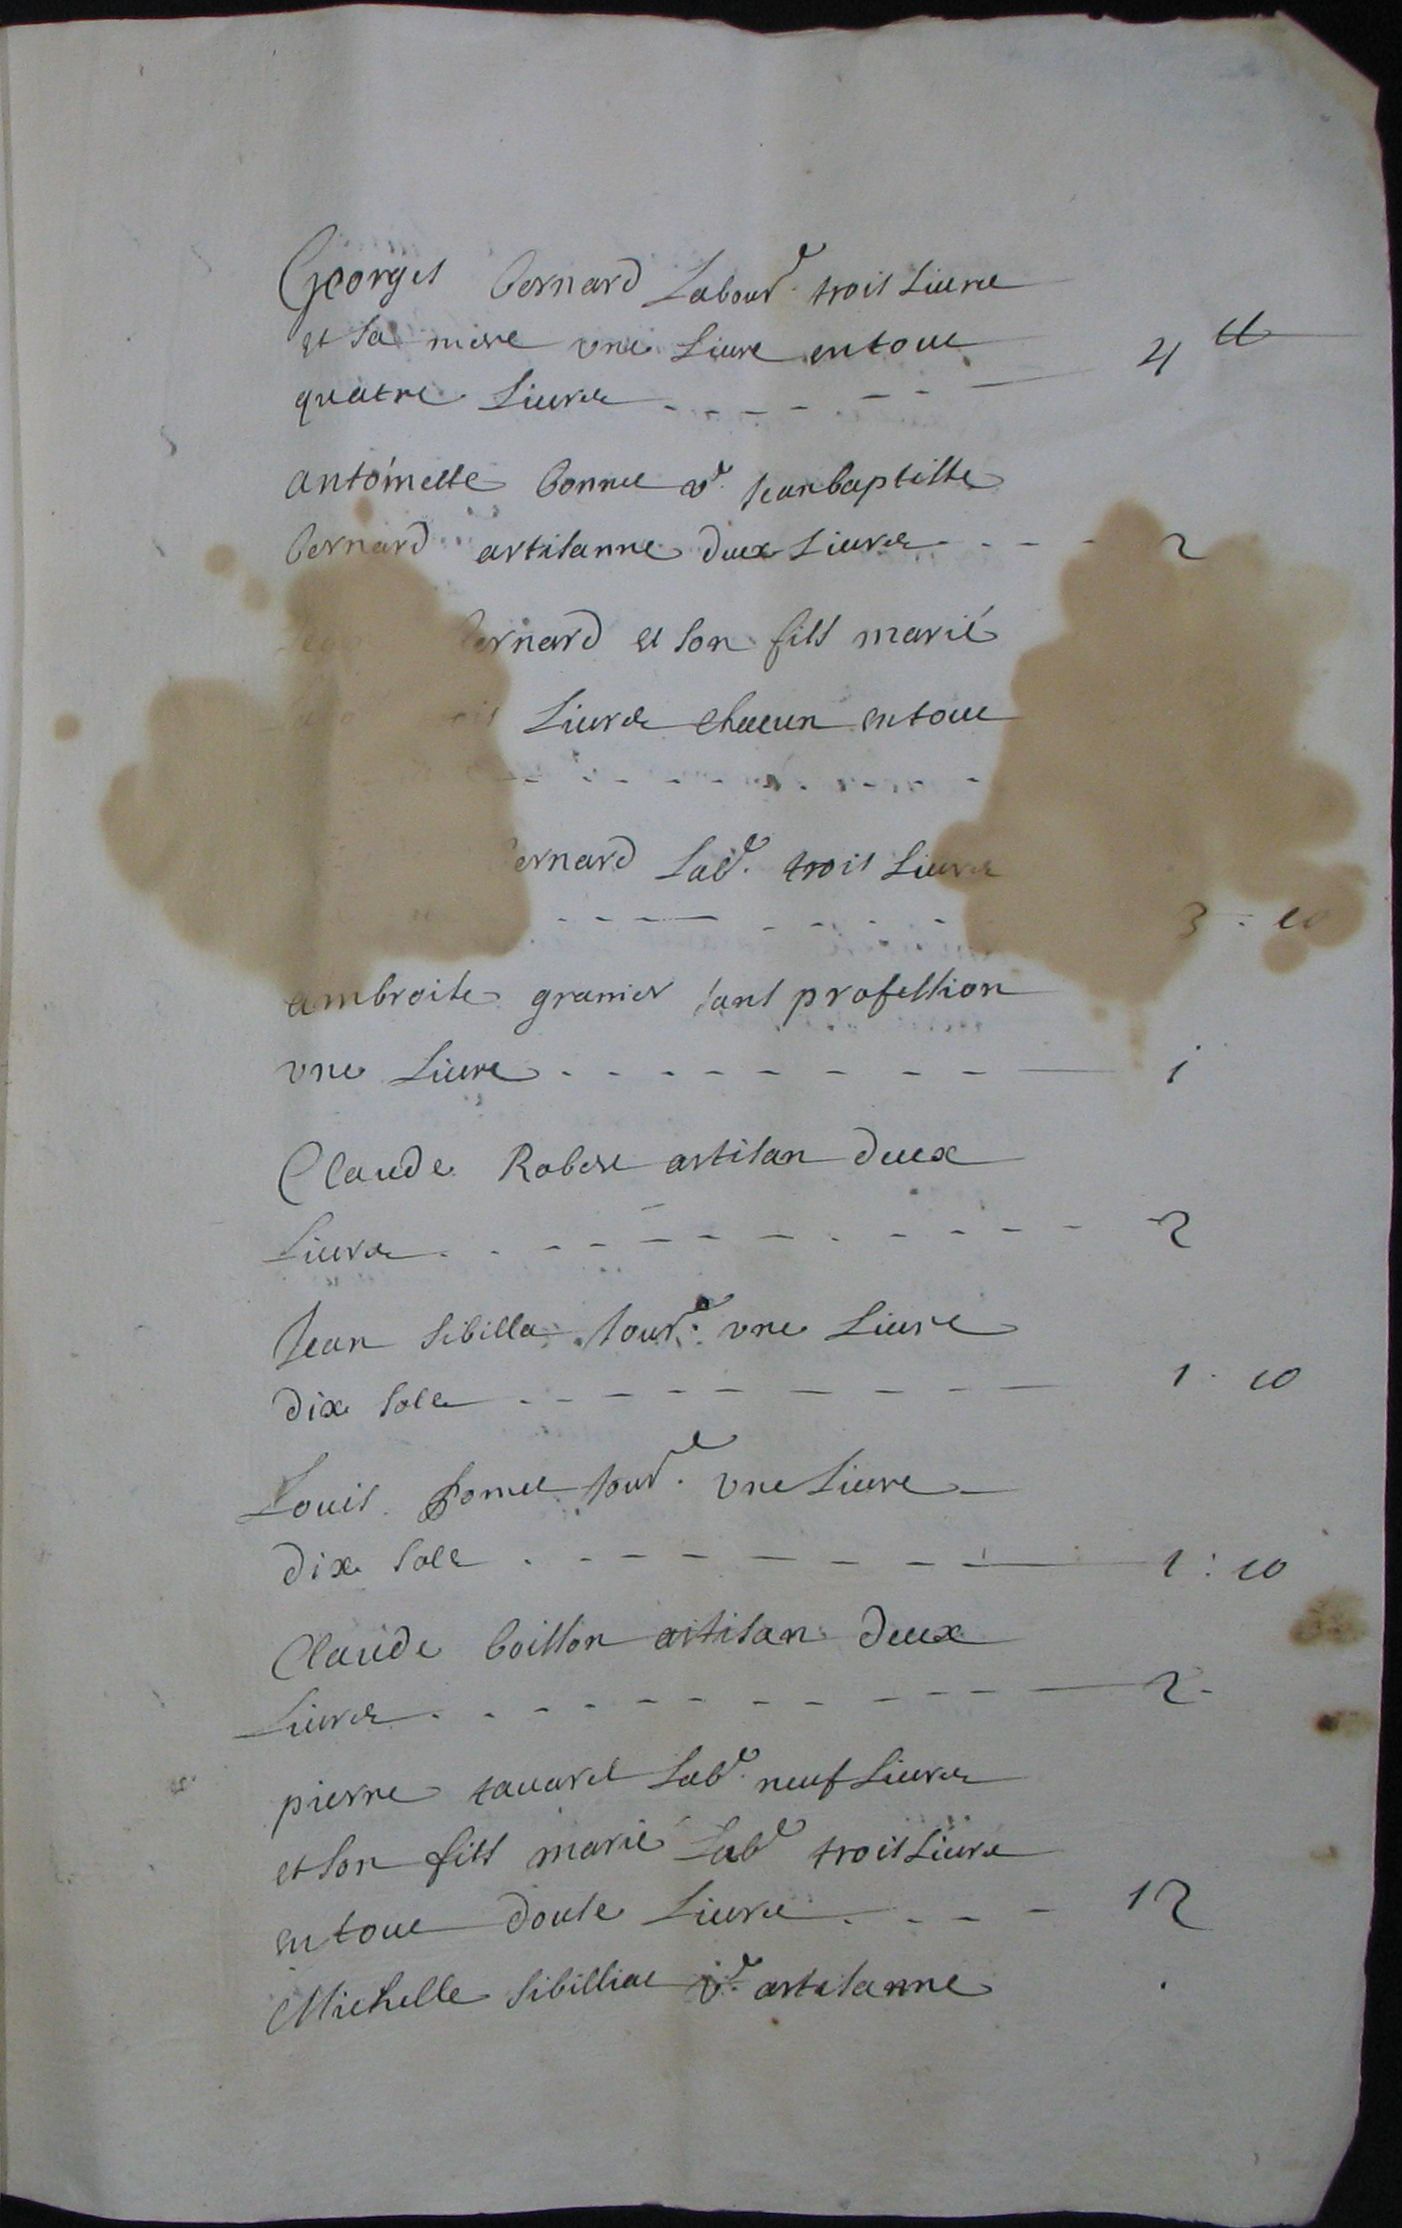 Georges bernard Labour. trois Livre
et sa mere une Livre en tout 4 ₶
quatre Livres
antoinette bonne v.e Jean baptiste
bernard artisanne deux Livres 2
bernard et son fils marié
Livres chacun en tout
bernard Lab.r trois Livres
3 : 10
ambroise granier sans profession
une Livre 1
Claude Robere artisan deux
Livres 2
Jean Sibilla Jour. une Livre
dix sols 1 . 10
Louis pomel Jour. une Livre
dix sols 1 : 10
Claude boisson artisan deux
Livres 2
pierre tavarel Lab.r neuf Livres
et son fils marié Lab.r trois Livre
en tout douse Livre 12
Michelle Sibilliae v.e artisanne